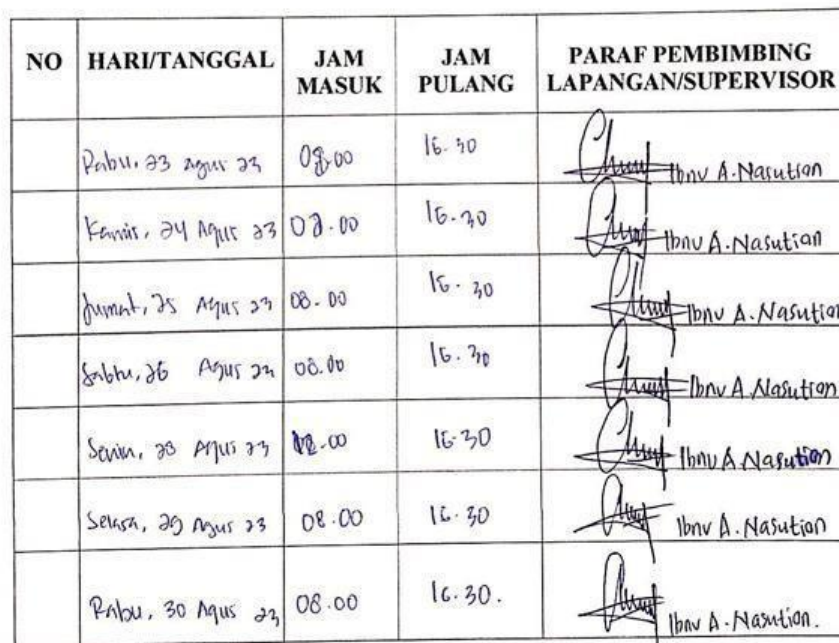 NO HARI/TANGGAL JAM MASUK JAM PULANG PARAF PEMBIMBING LAPANGAN/SUPERVISOR
Rabu, 23 Agus 23 08.00 16.30 Ibnu A. Nasution
Kamis, 24 Agus 23 08.00 16.30 Ibnu A. Nasution
Jumat, 25 Agus 23 08.00 16.30 Ibnu A. Nasution
Sabtu, 26 Agus 23 08.00 16.30 Ibnu A. Nasution
Senin, 28 Agus 23 08.00 16.30 Ibnu A. Nasution
Selasa, 29 Agus 23 08.00 16.30 Ibnu A. Nasution
Rabu, 30 Agus 23 08.00 16.30. Ibnu A. Nasution.